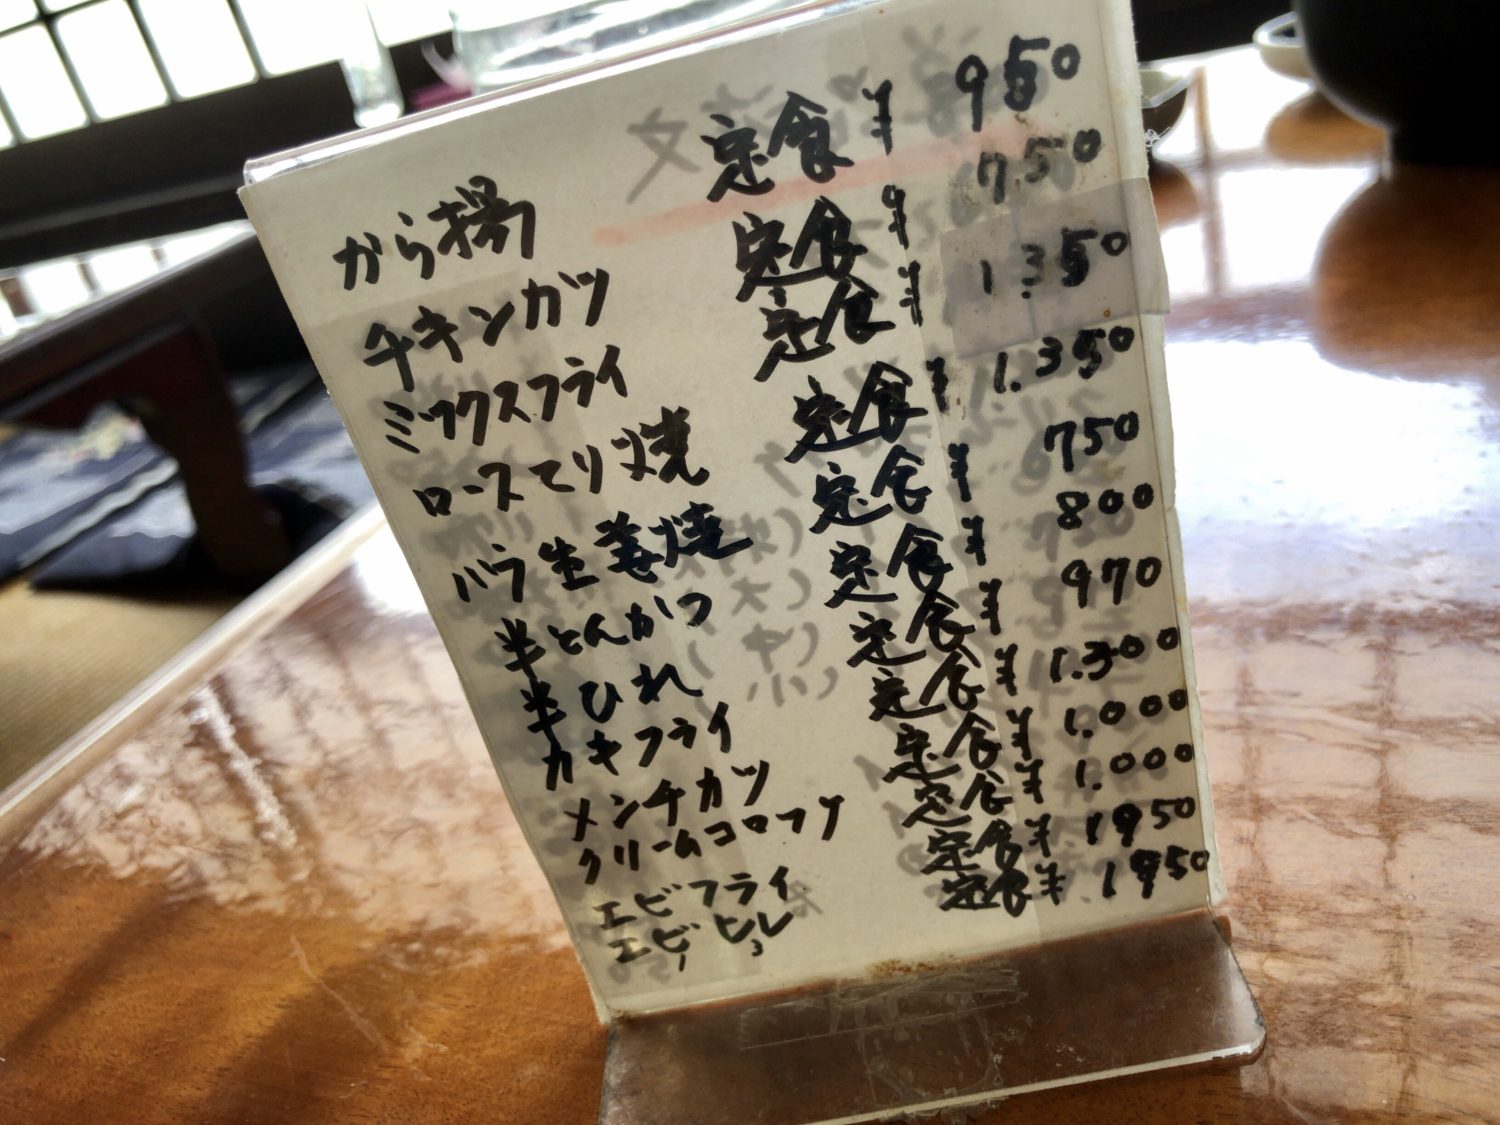 から揚 定食 ¥ 950
チキンカツ 定食 ¥ 750
ミックスフライ 定食 ¥ 1.350
ロースてり焼 定食 ¥ 1.350
バラ生姜焼 定食 ¥ 750
半とんかつ 定食 ¥ 800
半ひれ 定食 ¥ 970
カキフライ 定食 ¥ 1.300
メンチカツ 定食 ¥ 1.000
クリームコロッケ 定食 ¥ 1.000
エビフライ 定食 ¥ 1950
エビ1 ヒレ3 定食 ¥ 1950